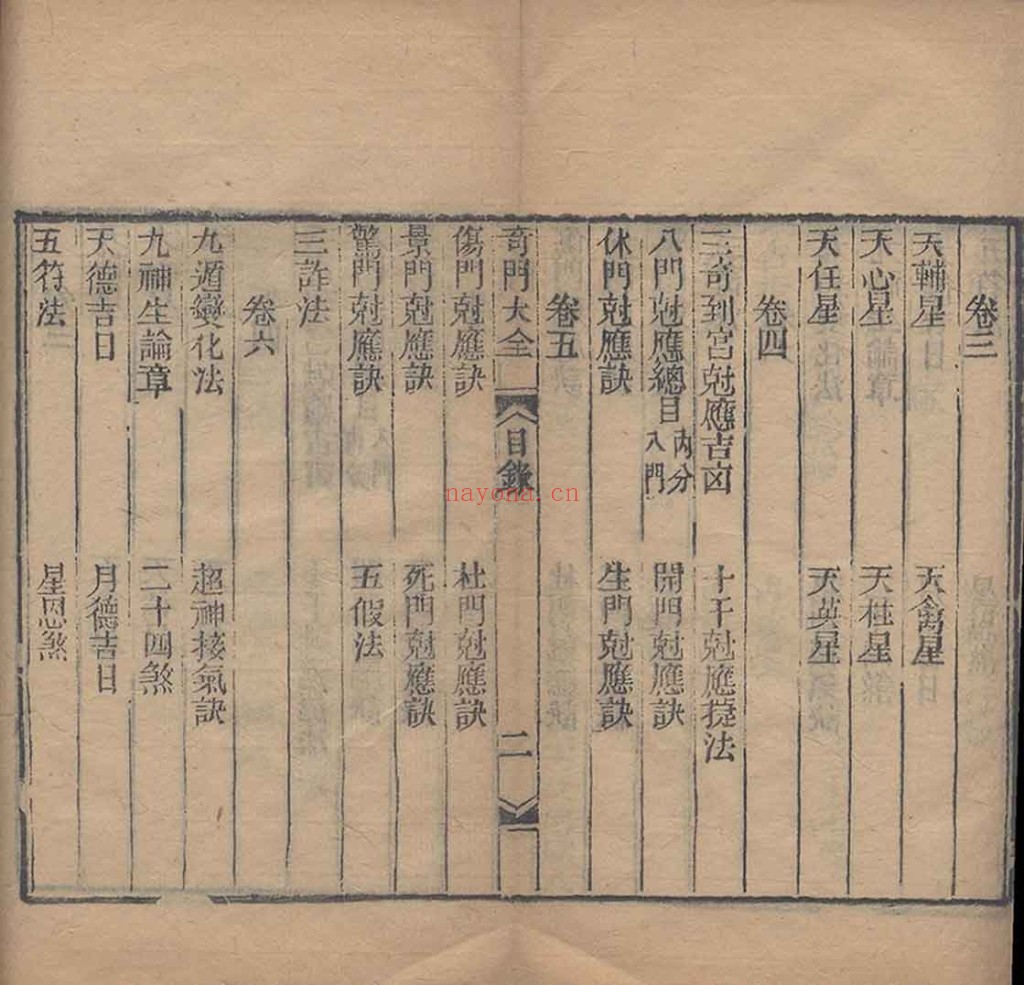 卷三
天輔星　天禽星
天心星　天柱星
天任星　天英星
卷四
三奇到宮尅應吉凶　十干尅應捷法
八門尅應總目內分八門　開門尅應訣
休門尅應訣　生門尅應訣
卷五
奇門大全　目錄　二
傷門尅應訣　杜門尅應訣
景門尅應訣　死門尅應訣
驚門尅應訣　五假法
三詐法
卷六
九遁變化法　超神接氣訣
九神生論章　二十四煞
天德吉日　月德吉日
五符法　星恩煞
nayona.cn